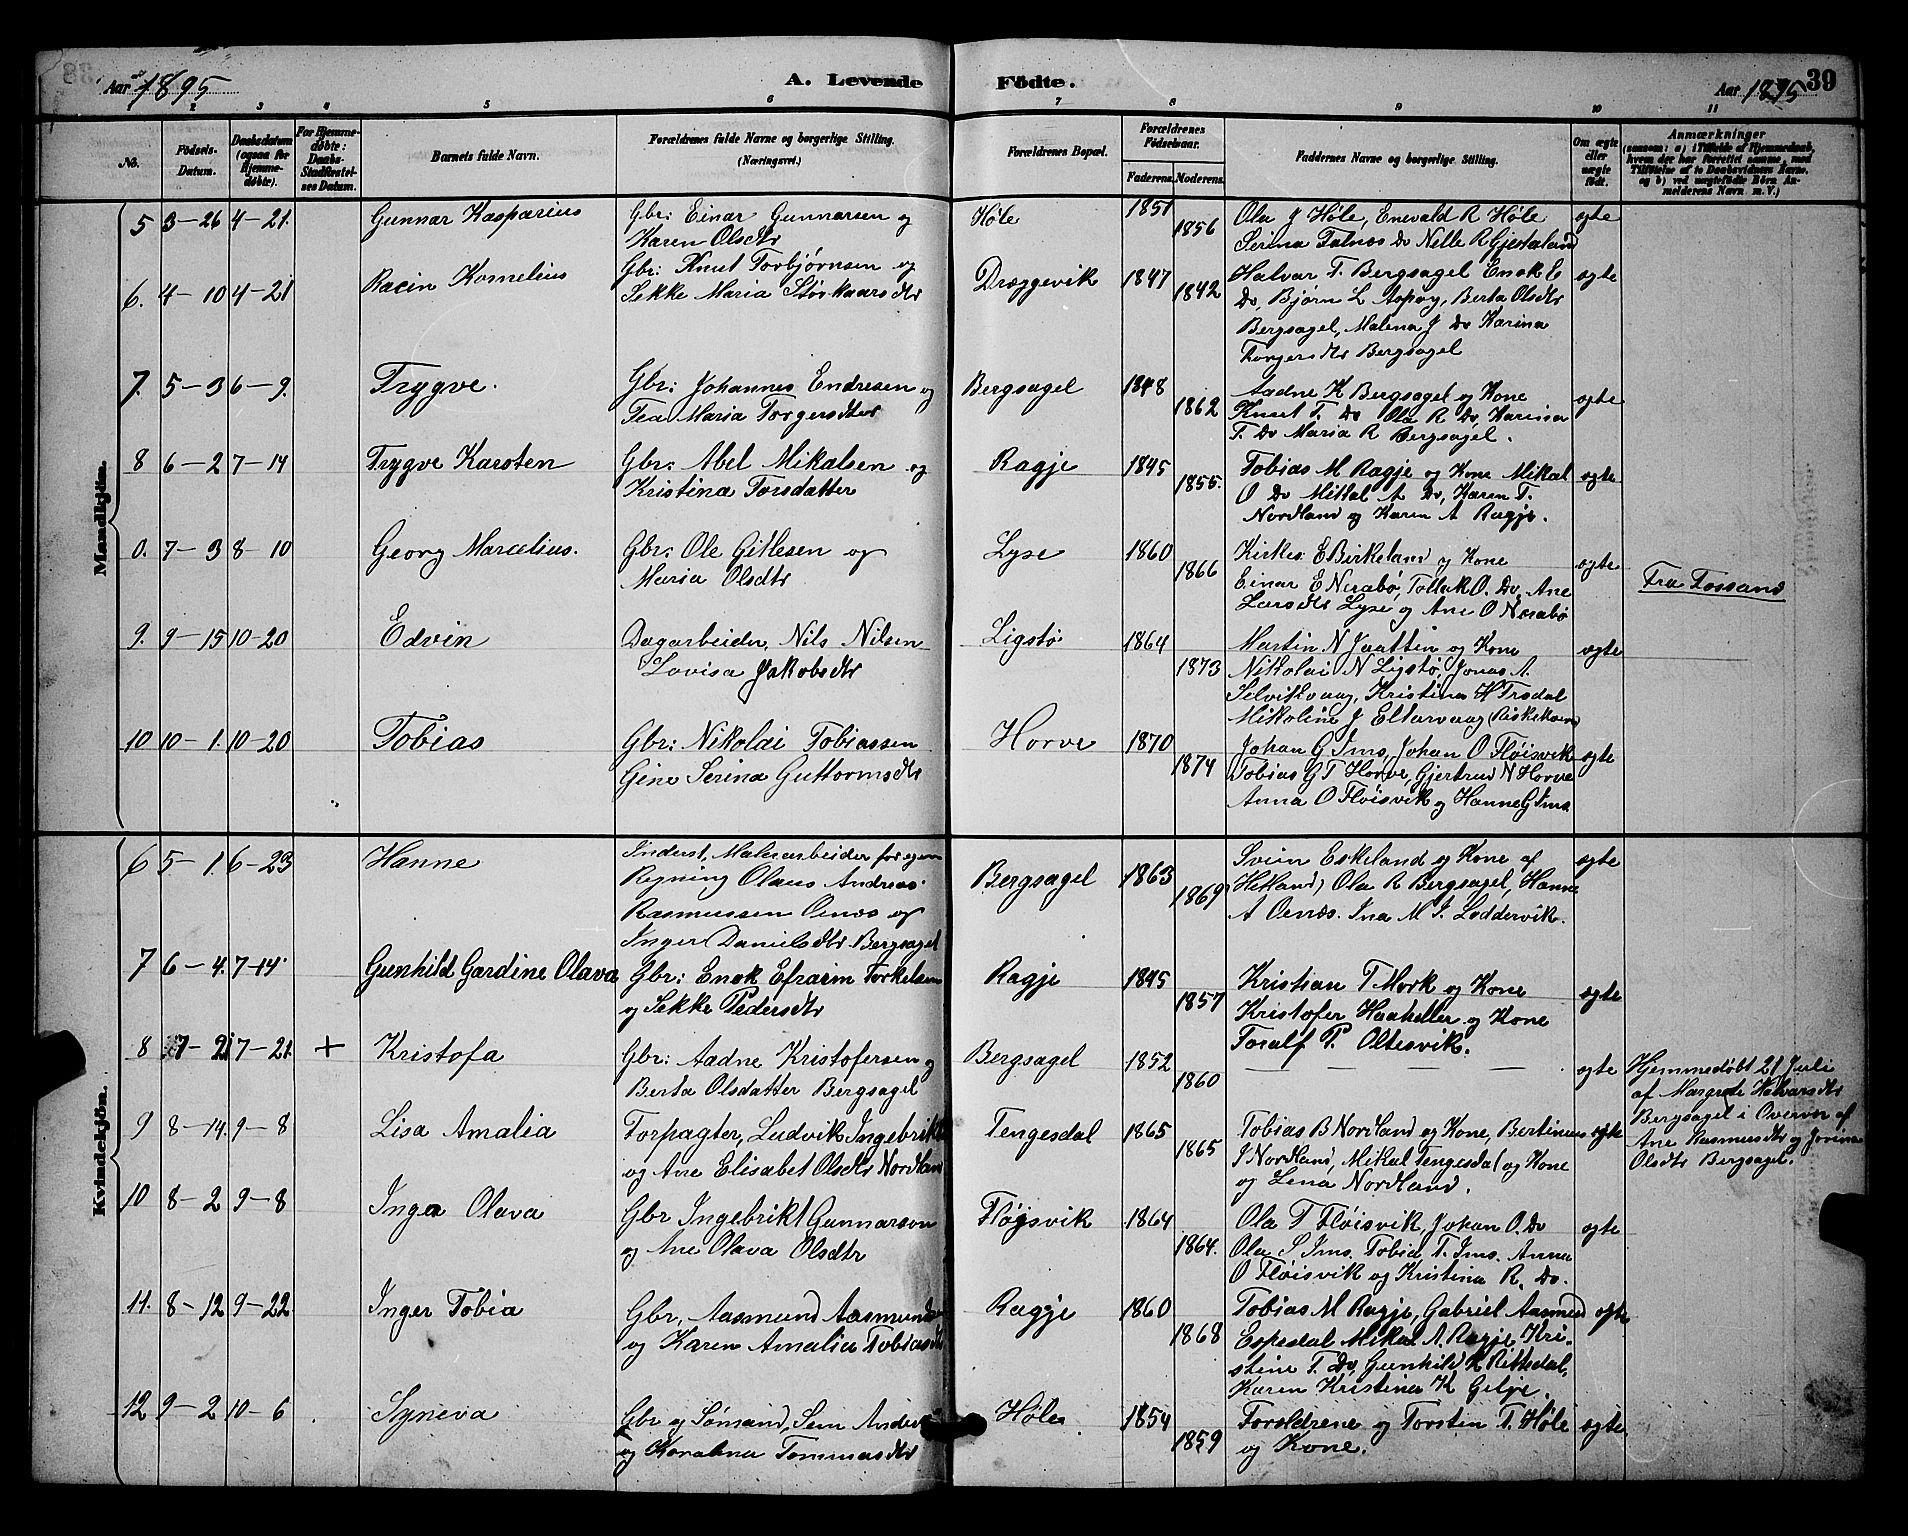 Aar 1895
A. Levende Födte.
Aar 1895
39
2 3 4 5 6 7 8 9 10 11
No.
Födsels-Datum.
Daabsdatum (ogsaa for Hjemme-døbte).
For Hjemme-døbte: Daabs-Stadfæstel-ses Datum.
Barnets fulde Navn.
Forældrenes fulde Navne og borgerlige Stilling.
(Næringsvei.)
Forældrenes Bopæl.
Forældrenes Födselsaar.
Faderens. Moderens.
Faddernes Navne og borgerlige Stilling.
Om ægte eller uægte født.
Anmærkninger
Mandkjön.
5 3-26 4-21. Gunnar Kasparius Gbr: Einar Gunnarsen og Høle 1851 Ola J Høle, Enevald R Høle ægte
Karen Olsdtr 1856 Serina Talnæs Do Nelle R Gjestaland
6. 4-10 4-21 Racin Kornelius Gbr: Knut Torbjørnsen og Dræggevik 1847 Halvar T. Bergsagel Enok E ægte
Sekke Maria Størkaarsdtr 1842 Do, Bjørn L Aspøy, Berta Olsdtr
Bergsagel, Malena J Do Karina
Torgersdtr Bergsagel
7. 5-3 6-9. Trygve. Gbr: Johannes Endresen og Bergsagel 1848 Aadne K Bergsagel og Kone ægte
Tea Maria Torgersdtr 1862 Knut T. Do Ola R Do, Karina
T. Do Maria R Bergsagel.
8 6-2 7-14 Trygve Karsten Gbr: Abel Mikalsen og Ragje 1845 Tobias M Ragje og Kone Mikal ægte
Kristina Torsdatter 1855. O Do Mikal A Do, Karen T.
Nordland og Karen A Ragje.
0. 7-3 8-10 Georg Marcelius. Gbr: Ole Gitlesen og Lyse 1860 Kirkes: E Birkeland og Kone ægte
Maria Olsdtr 1866 Einar E Nerabø, Tollak O. Do, Ane Fra Fossand
Larsdtr Lyse og Ane O Nerabø
9. 9-15 10-20 Edvin Dagarbeider, Nils Nilsen Ligstø 1864 Martin N Jaattin og Kone ægte
Lovisa Jakobsdtr 1873 Nikolai N Ligstø, Jonas A.
Selvikvaag, Kristina H Frsdal
Mikoline J Eltarvaag (Riskekvm)
10 10-1. 10-20 Tobias Gbr: Nikolai Tobiassen Horve 1870 Johan G Ims, Johan O Fløisvik ægte
Gine Serina Guttormsdtr 1874 Tobias G T Horve, Gjertrud N Horve
Anna O Fløisvik og Hanne G Ims
Kvindekjön.
6 5-1. 6-23 Hanne Inderst, Malerarbeider for egen Bergsagel 1863 Svein Eskeland og Kone af ægte
Regning Olaus Andreas 1869 Hetland, Ola R Bergsagel, Hanne
Rasmussen Oenæs og A Oenæs. Ina M J. Loddervik.
Inger Danielsdtr Bergsagel
7 6-4. 7-14. Gunhild Gardine Olava Gbr: Enok Efraim Torkelsen Ragje 1845 Kristian T Mork og Kone ægte
og Sekke Pedersdtr 1857 Kristofer Haaheller og Kone
Toralf P. Oltesvik.
8 7-21 7-21. + Kristofa Gbr: Aadne Kristofersen og Bergsagel 1852 — — — — — ægte Hjemmedøbt 21 Juli
Berta Olsdatter Bergsagel 1860 af Margrete Halvarsdtr
Bergsagel i Overvær af
Ane Rasmusdtr og Jovina
Olsdtr Bergsagel.
9 8-14. 9-8 Lisa Amalia Forpagter, Ludvik Ingebrikts Tengesdal 1865 Tobias B Nordland og Kone, Bertinius ægte
og Ane Elisabet Olsdtr Nordland 1865 J Nordland, Mikal Tengesdal og Kone
og Lena Nordland.
10 8-2 9-8 Inga Olava Gbr Ingebrikt Gunnarson Fløisvik 1864 Ola T Fløisvik, Johan O. Do ægte
og Ane Olava Olsdtr 1864. Ola S Ims. Tobia T. Ims. Anna
O Fløisvik og Kristina R. Do.
11. 8-12 9-22 Inger Tobia Gbr, Aasmund Aasmundsen Ragje 1860 Tobias M Ragje, Gabriel Aasmund ægte
og Karen Amalia Tobiasdtr 1868 Espedal Mikal A. Ragje, Kri-
stine T. Do, Gunhild K Rettedal,
Karen Kristina K Gilje.
12 9-2 10-6 Syneva Gbr og Sømand, Sem Anders Høle 1854 Foreldrene og Torsten T. Høle ægte
og Koralina Tommasdtr 1859 og Kone.